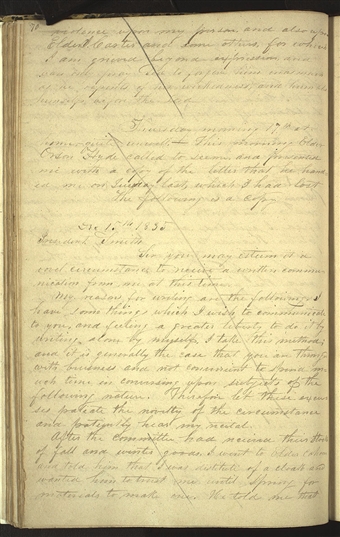 violence upon my person and also upon
Elder Carter and some others, for which
I am grieved beyond expression and
 
Thursday morning 17th at
home. This morning Elder
Orson Hyde called to see me and presented
me with a copy of the letter that he hand
ed me on Tuesday last, which I had lost
The following is a copy
Dec 15th 1835
President Smith
Sir you may esteem it a
novel circumstance to receive a written commu-
nication from me at this time.
My reason for writing are the following. I
have some things which I wish to communicate
to you, and feeling a greater liberty to do it by
writing alone by myself, I take this method;
and it is generally the case that you are thronged
with business and not convenient to spend m
uch time in conversing upon subjects of the
following nature. Therefore let these excu-
ses paliate the novelty of the circumstance
and patiently hear my recital.
After the Committee had received their stock
of fall and winter goods, I went to Elder Cahoon
and told him that I was destitute of a cloak and
wanted him to trust me until Spring for
materials to make one. He told me that